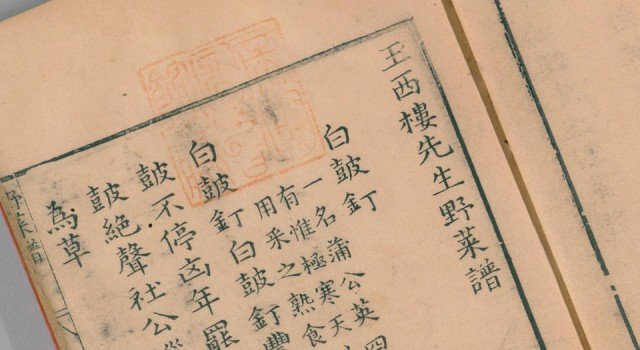 王西樓先生野菜譜
白皷釘
一名蒲公英四
有惟極寒天
用采之熟食
白皷釘白皷釘豐
皷不停凶年罷
皷絕聲社公
為草
菜譜